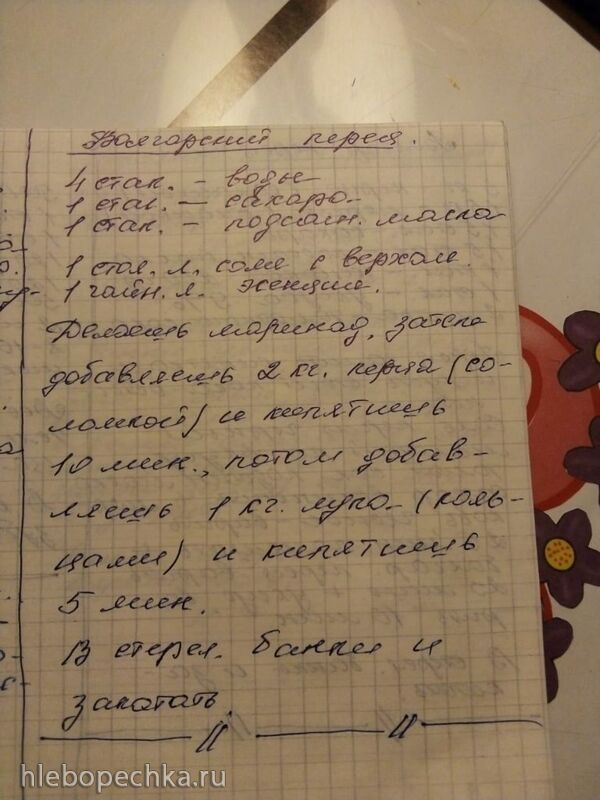 Болгарский перец.
4 стак. – воды
1 стак. – сахара
1 стак. – подсолн. масла
1 стол. л. соли с верхом.
1 чайн. л. эссенции.
Делаешь маринад, затем
добавляешь 2 кг. перца (со-
ломкой) и кипятишь
10 мин., потом добав-
ляешь 1 кг. лука (коль-
цами) и кипятишь
5 мин.
В стерел. банки и
закатать
hlebopechka.ru